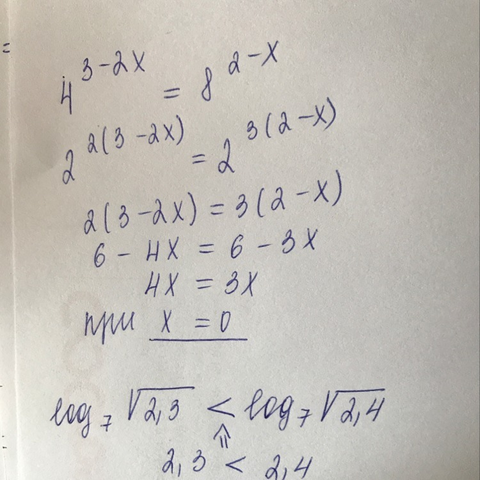 4^(3-2x) = 8^(2-x)
2^(2(3-2x)) = 2^(3(2-x))
2(3-2x) = 3(2-x)
6 - 4x = 6 - 3x
4x = 3x
при x = 0
log₇ √2,3 < log₇ √2,4
⇑
2,3 < 2,4